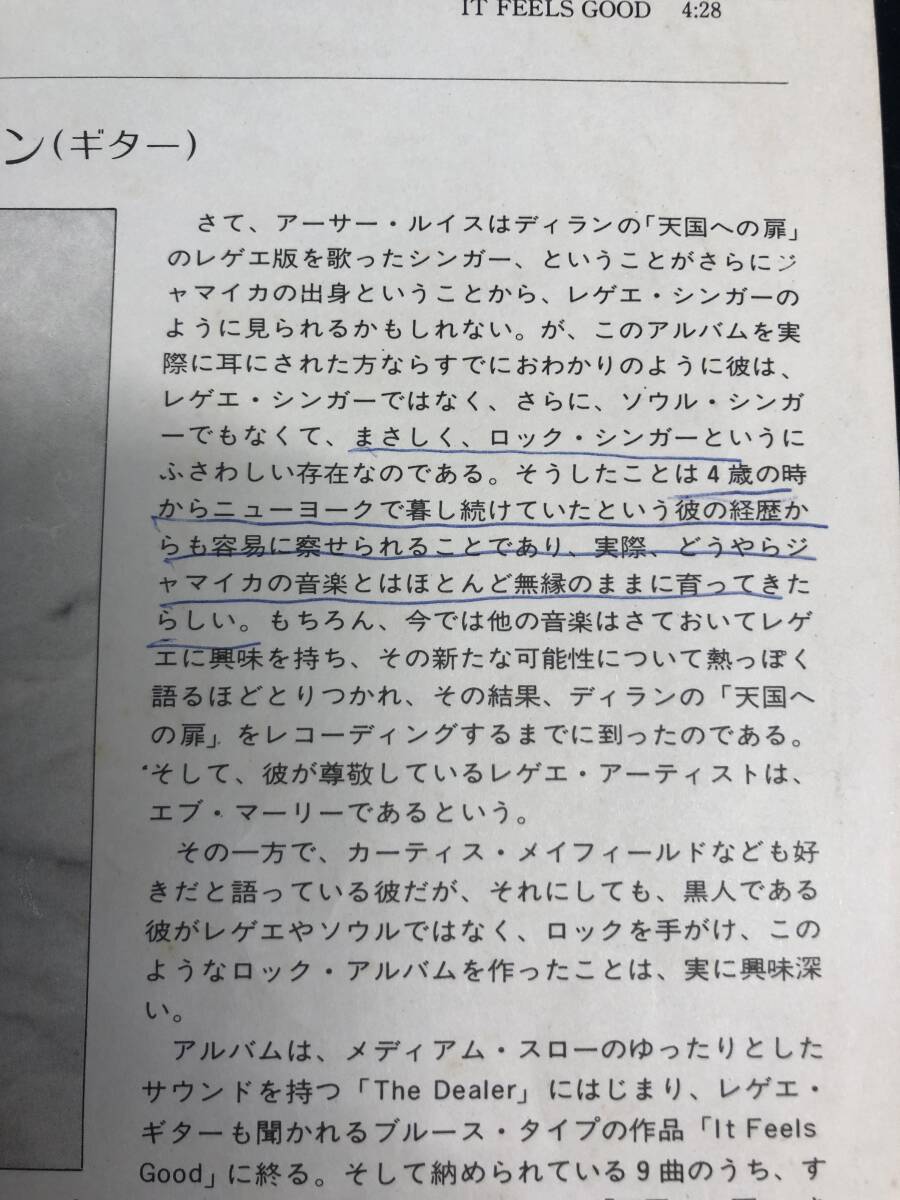 IT FEELS GOOD 4:28
ン(ギター)
さて、アーサー・ルイスはディランの「天国への扉」
のレゲエ版を歌ったシンガー、ということがさらにジ
ャマイカの出身ということから、レゲエ・シンガーの
ように見られるかもしれない。が、このアルバムを実
際に耳にされた方ならすでにおわかりのように彼は、
レゲエ・シンガーではなく、さらに、ソウル・シンガ
ーでもなくて、まさしく、ロック・シンガーというに
ふさわしい存在なのである。そうしたことは4歳の時
からニューヨークで暮し続けていたという彼の経歴か
らも容易に察せられることであり、実際、どうやらジ
ャマイカの音楽とはほとんど無縁のままに育ってきた
らしい。もちろん、今では他の音楽はさておいてレゲ
エに興味を持ち、その新たな可能性について熱っぽく
語るほどとりつかれ、その結果、ディランの「天国へ
の扉」をレコーディングするまでに到ったのである。
そして、彼が尊敬しているレゲエ・アーティストは、
エブ・マーリーであるという。
その一方で、カーティス・メイフィールドなども好
きだと語っている彼だが、それにしても、黒人である
彼がレゲエやソウルではなく、ロックを手がけ、この
ようなロック・アルバムを作ったことは、実に興味深
い。
アルバムは、メディアム・スローのゆったりとした
サウンドを持つ「The Dealer」にはじまり、レゲエ・
ギターも聞かれるブルース・タイプの作品「It Feels
Good」に終る。そして納められている9曲のうち、す